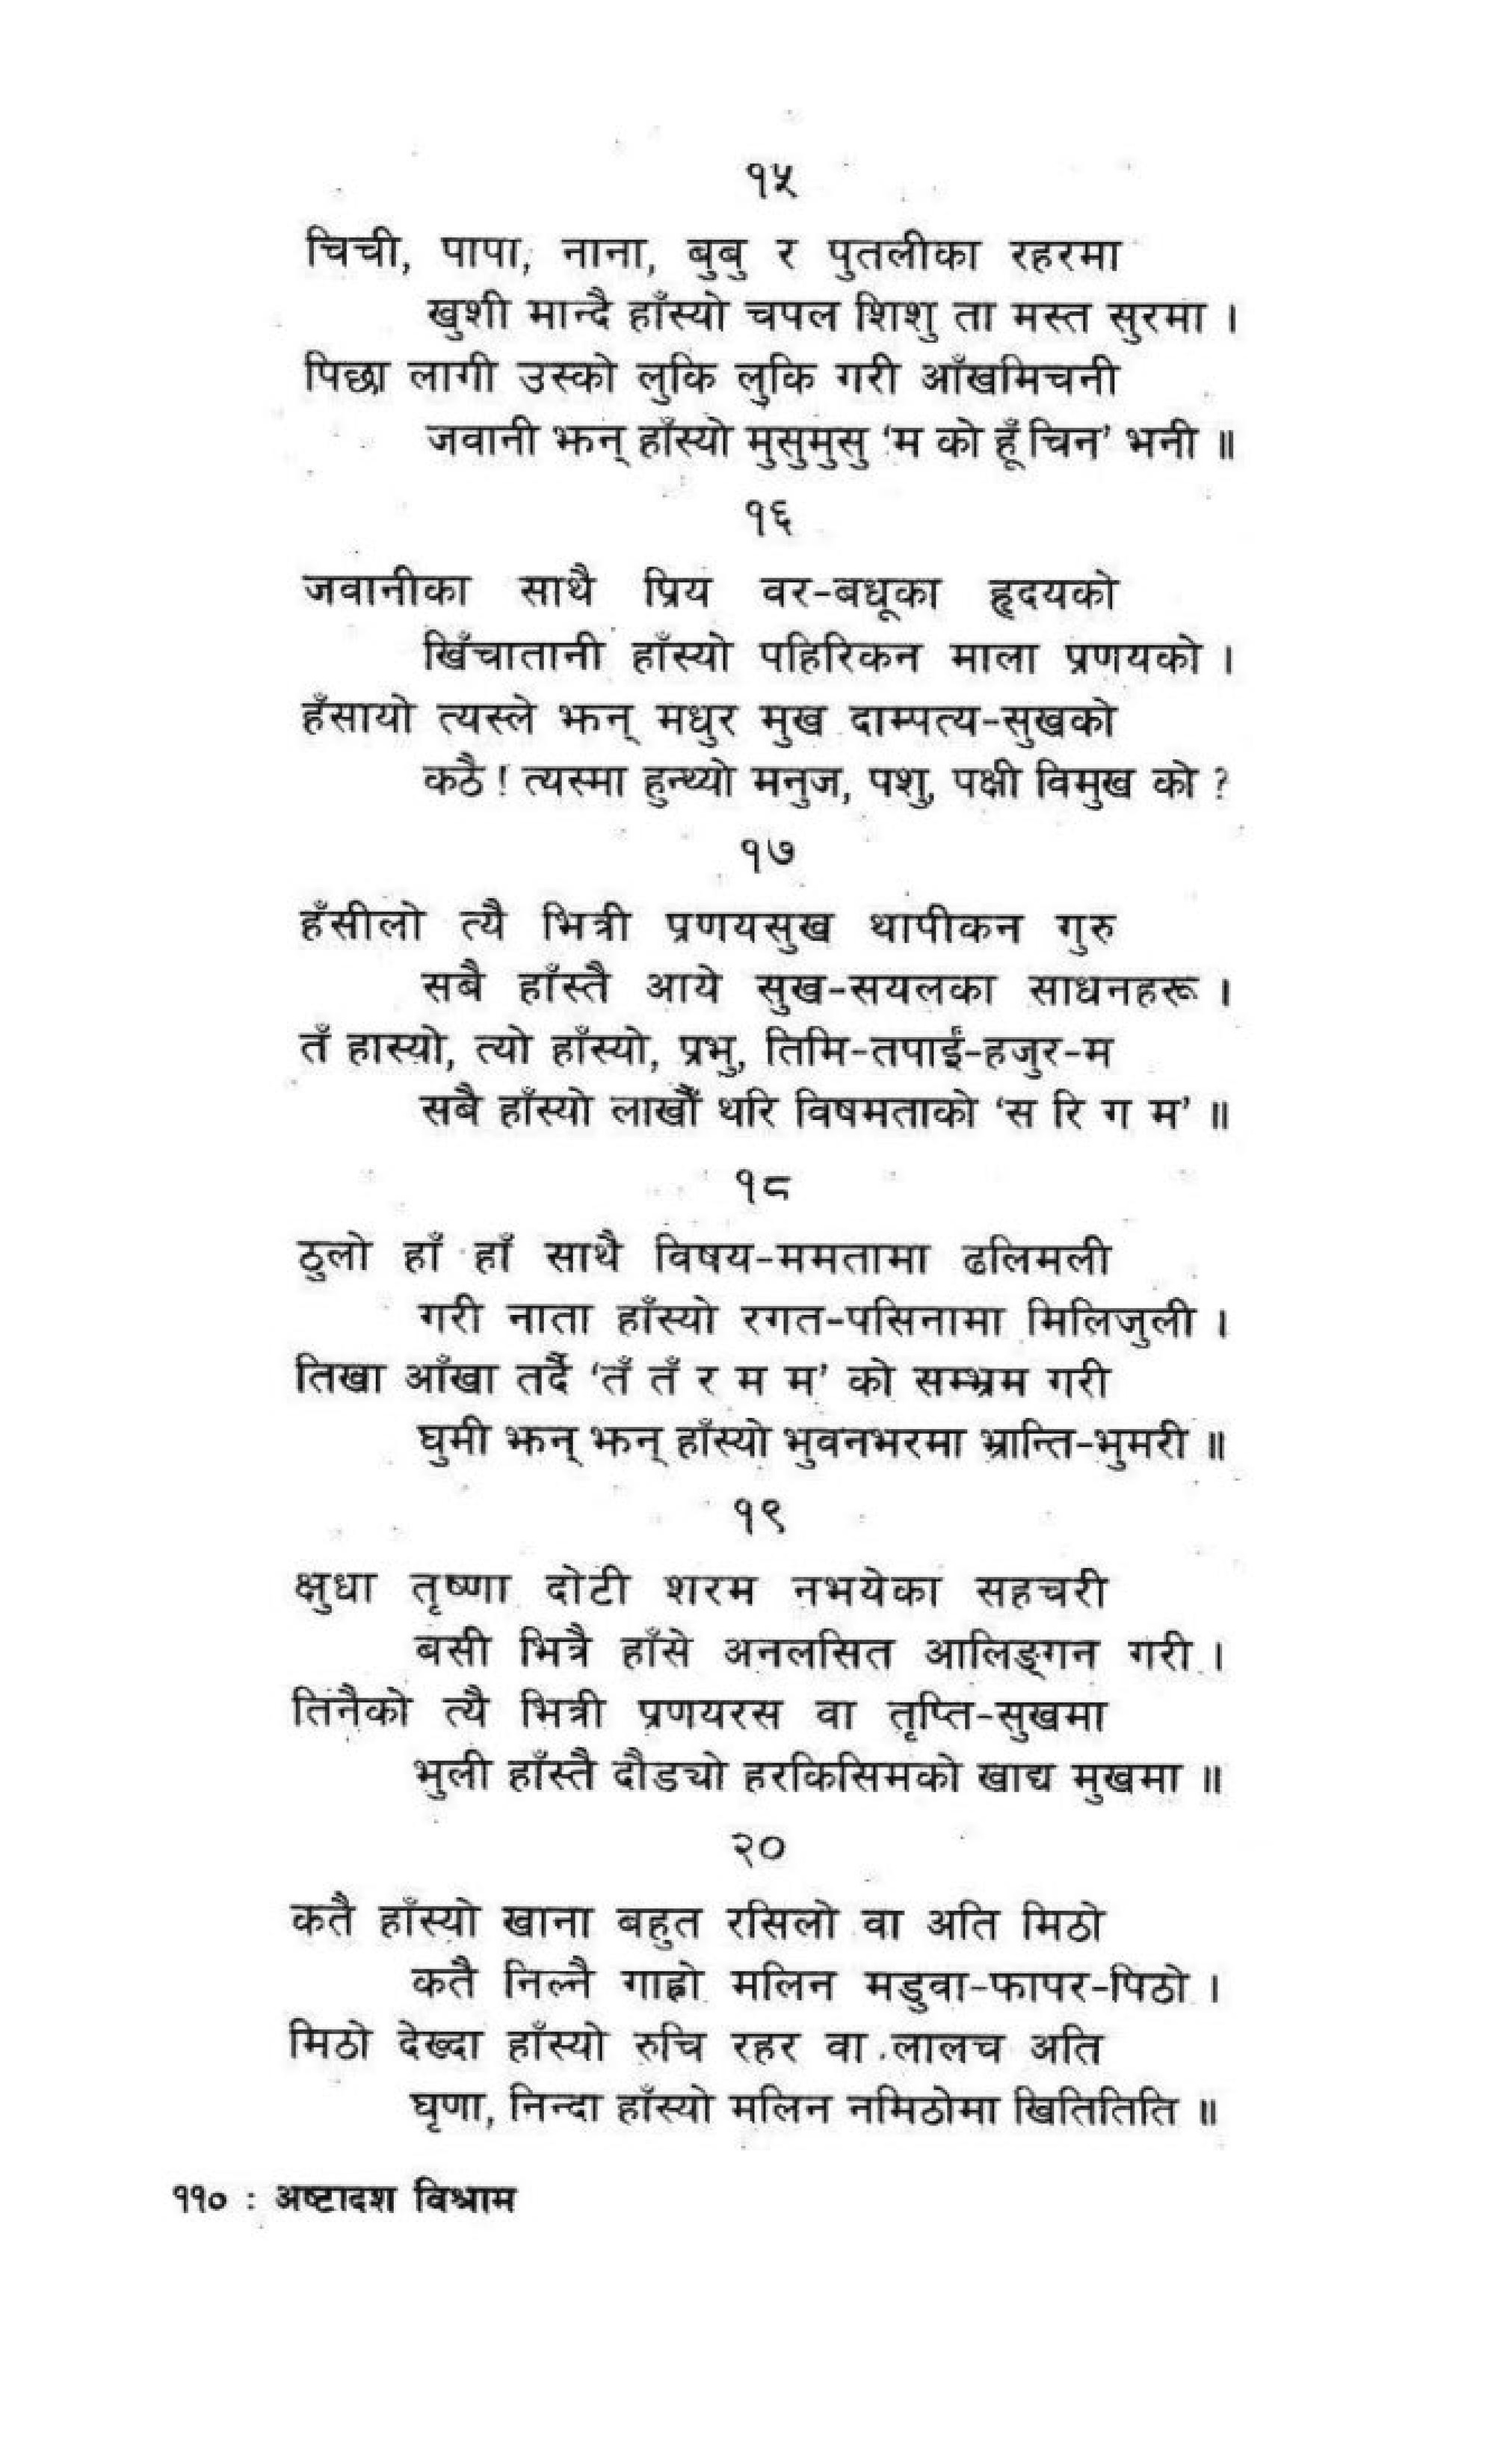 १५
चिची, पापा, नाना, बुबु र पुतलीका रहरमा
खुशी मान्दै हाँस्यो चपल शिशु ता मस्त सुरमा ।
पिछा लागी उस्को लुकि लुकि गरी आँखमिचनी
जवानी झन् हाँस्यो मुसुमुसु ‘म को हूँ चिन’ भनी ॥
१६
जवानीका साथै प्रिय वर-बधूका हृदयको
खिँचातानी हाँस्यो पहिरिकन माला प्रणयको ।
हँसायो त्यस्ले झन् मधुर मुख दाम्पत्य-सुखको
कठै ! त्यस्मा हुन्थ्यो मनुज, पशु, पक्षी विमुख को ?
१७
हँसीलो त्यै भित्री प्रणयसुख थापीकन गुरु
सबै हाँस्तै आये सुख-सयलका साधनहरू ।
तँ हास्यो, त्यो हाँस्यो, प्रभु, तिमि-तपाईं-हजुर-म
सबै हाँस्यो लाखौँ थरि विषमताको ‘स रि ग म’ ॥
१८
ठुलो हाँ हाँ साथै विषय-ममतामा ढलिमली
गरी नाता हाँस्यो रगत-पसिनामा मिलिजुली ।
तिखा आँखा तर्दै ‘तँ तँ र म म’ को सम्भ्रम गरी
घुमी झन् झन् हाँस्यो भुवनभरमा भ्रान्ति-भुमरी ॥
१९
क्षुधा तृष्णा दोटी शरम नभयेका सहचरी
बसी भित्रै हाँसे अनलसित आलिङ्गन गरी ।
तिनैको त्यै भित्री प्रणयरस वा तृप्ति-सुखमा
भुली हाँस्तै दौडचो हरकिसिमको खाद्य मुखमा ॥
२०
कतै हाँस्यो खाना बहुत रसिलो वा अति मिठो
कतै निल्नै गाह्रो मलिन मडुवा-फापर-पिठो ।
मिठो देख्दा हाँस्यो रुचि रहर वा लालच अति
घृणा, निन्दा हाँस्यो मलिन नमिठोमा खितितिति ॥
११० : अष्टादश विश्राम